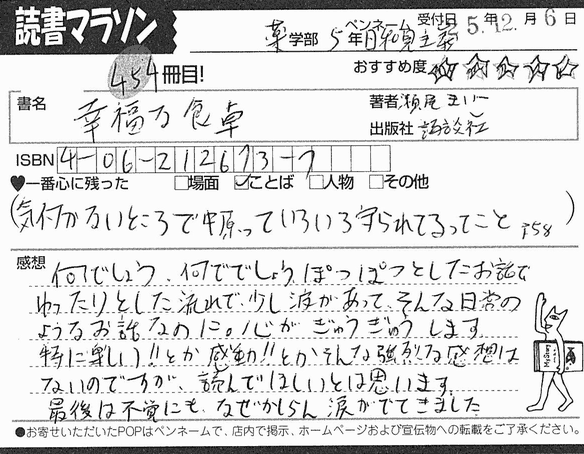 読書マラソン
薬学部 5年 ペンネーム 受付日 5.年12.月6日
454冊目!
おすすめ度 ☆☆☆☆☆
書名 幸福な食卓
著者 瀬尾まいこ
出版社 講談社
ISBN 4-06-212673-7
♥一番心に残った □場面 ☑ことば □人物 □その他
(気付かないところで中原っていろいろ守られてるってこと P58)
感想
何でしょう、何ででしょう ぽつぽつとしたお話で
ゆったりとした流れで、少し波があって、そんな日常の
ようなお話なのに。心がぎゅうぎゅうします。
特に楽しい!!とか感動!!とかそんな強烈な感想は
ないのですが、読んでほしいとは思います。
最後は不覚にも、なぜかしらん 涙がでてきました
●お寄せいただいたPOPはペンネームで、店内で掲示、ホームページおよび宣伝物への転載をご了承ください。